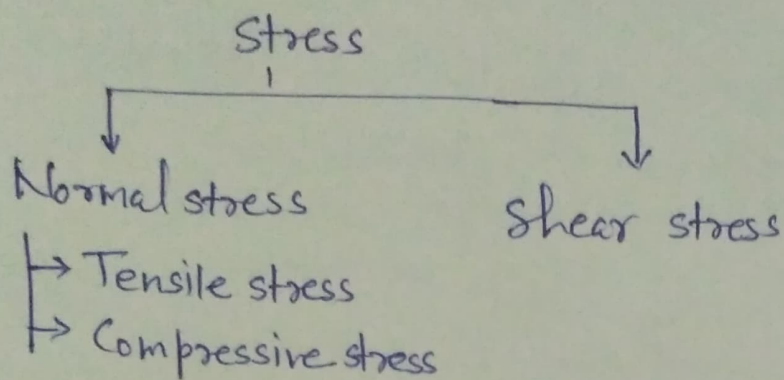 Stress
Normal stress
Shear stress
Tensile stress
Compressive stress